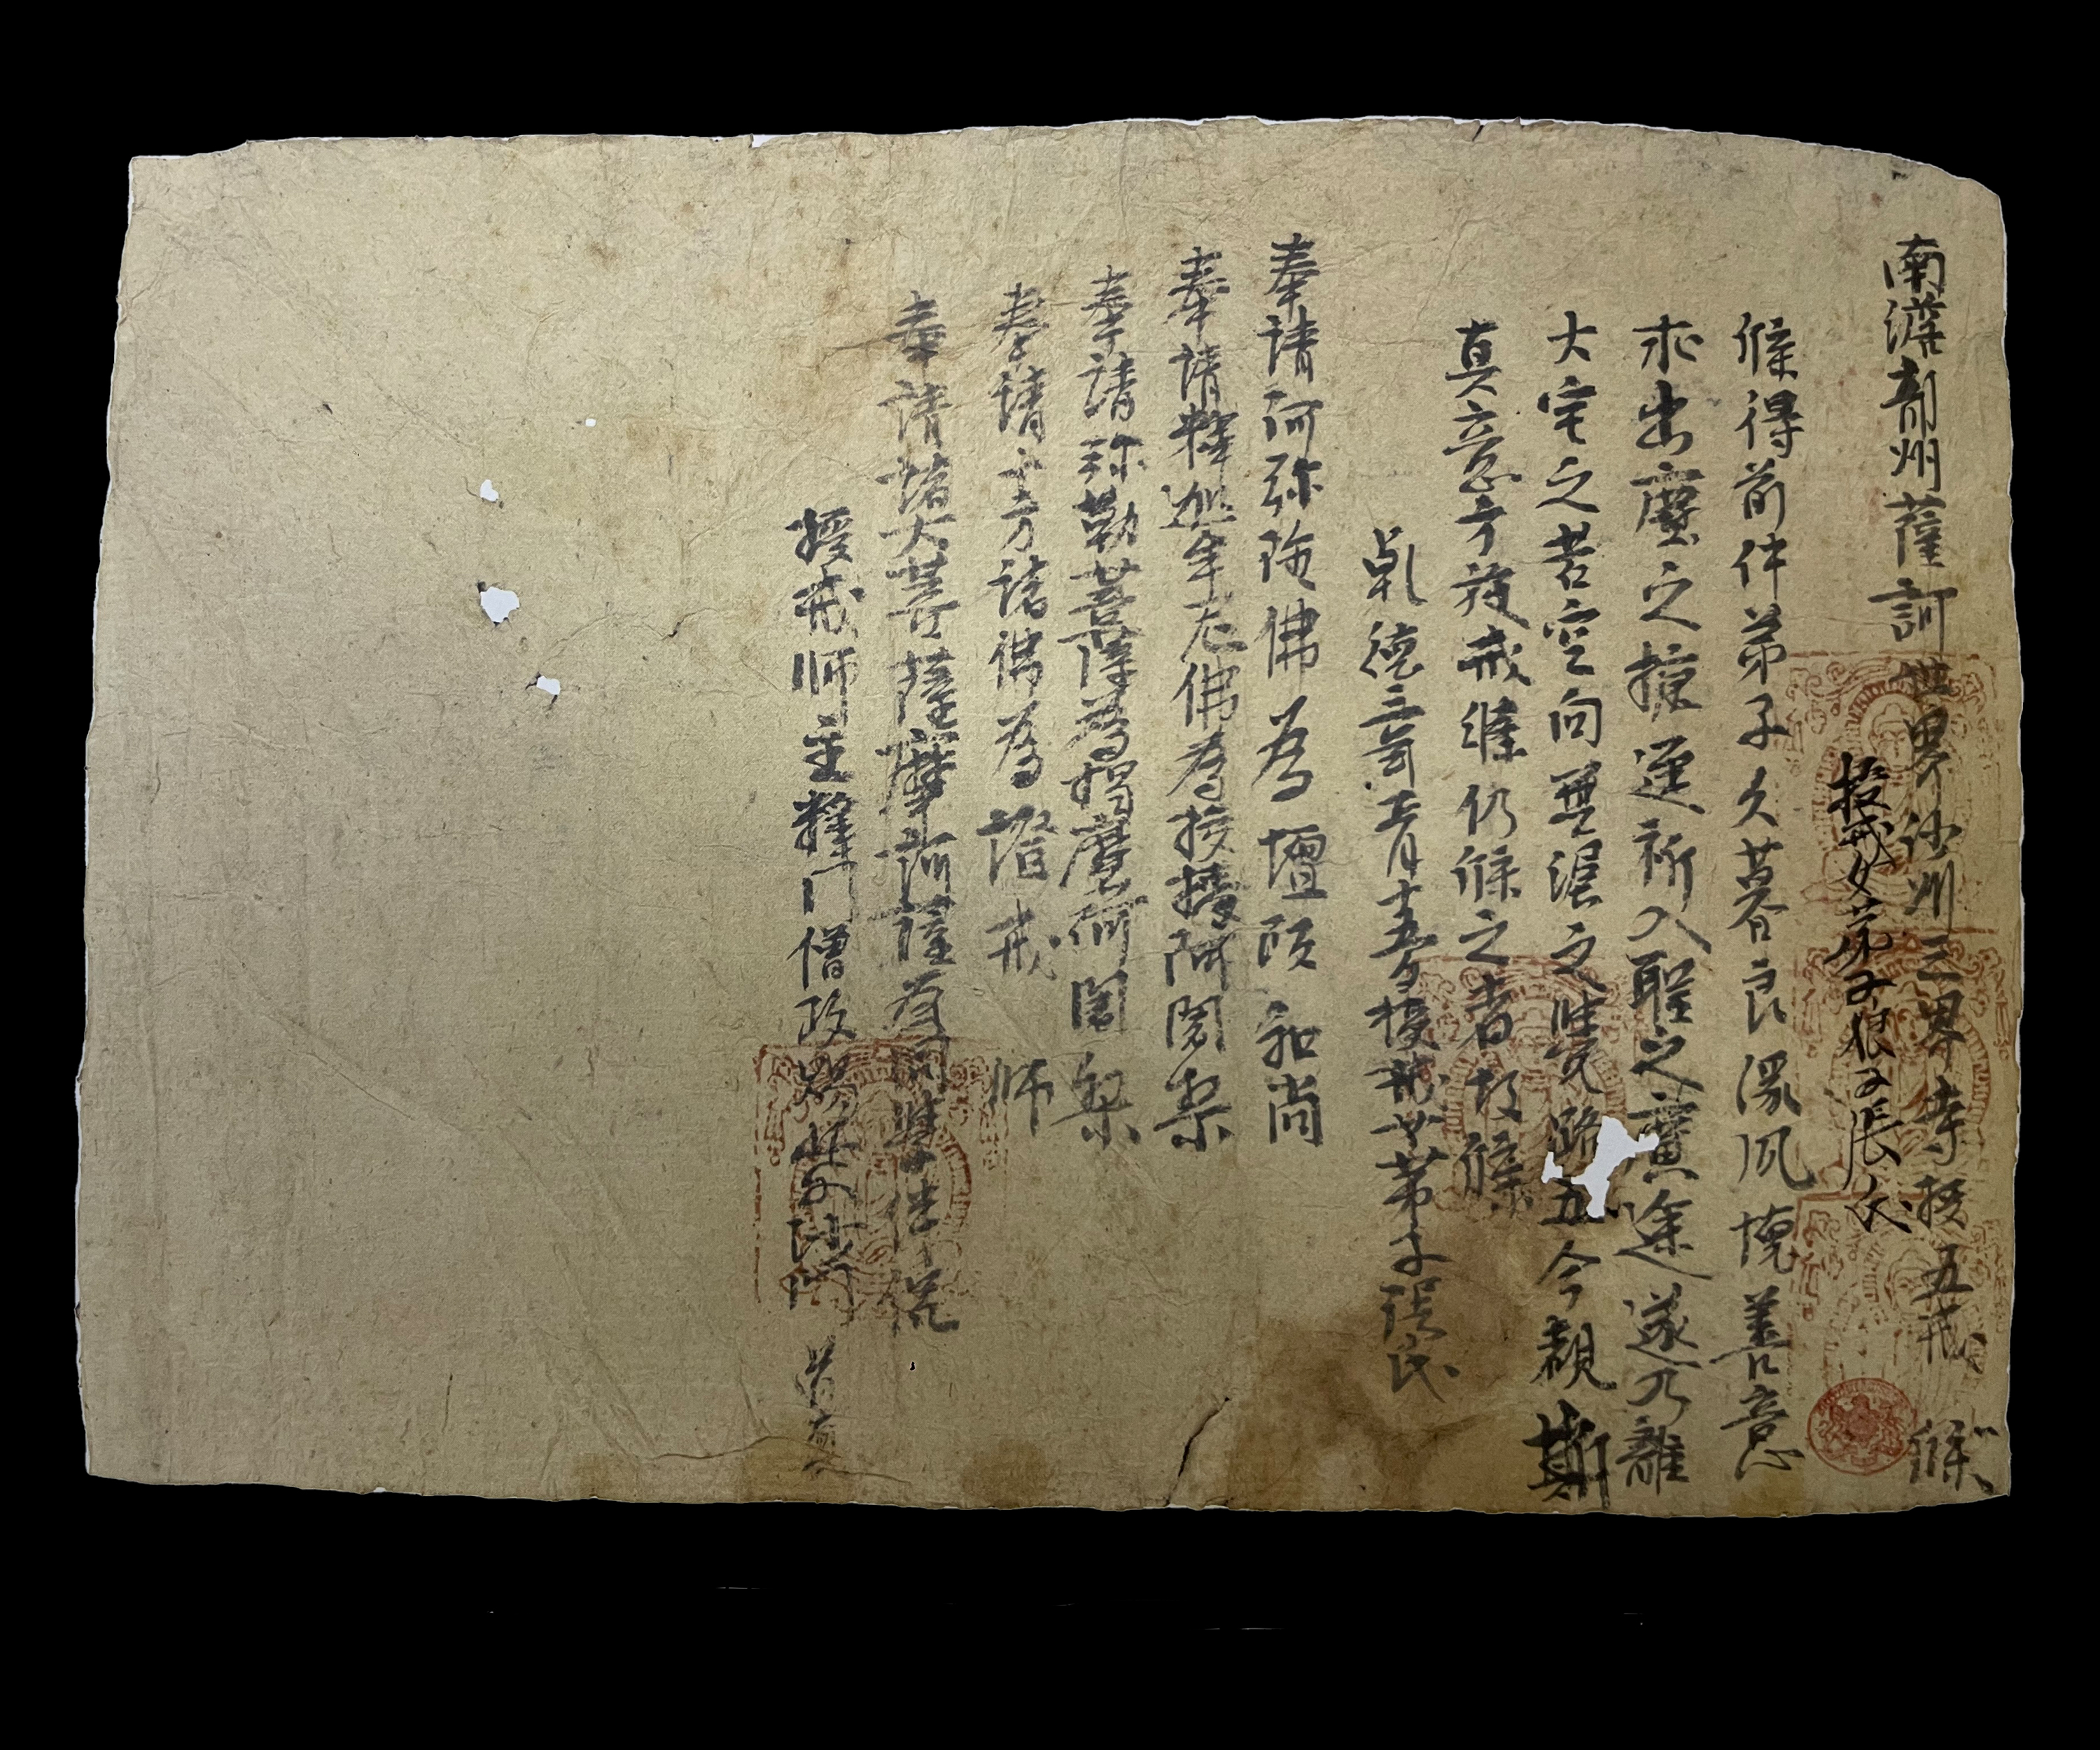 南贍部州薩訶世界沙州三界寺授五戒牒
授戒女弟子娘子張氏
牒得前件弟子久慕良緣夙懷善意
求出塵之捷逕祈入聖之廣途遂乃離
大宅之苦空向無漏之覺路五今覩斯
真意方施戒牒仍牒之者故牒
乾德三年正月十五日授戒女弟子張氏
奉請阿弥陁佛為壇頭和尚
奉請釋迦牟尼佛為授授阿闍梨
奉請弥勒菩薩為羯磨阿闍梨
奉請十方諸佛為證戒師
奉請諸大菩薩摩訶薩為同學伴侶
授戒師主釋門僧政賜紫沙門道真